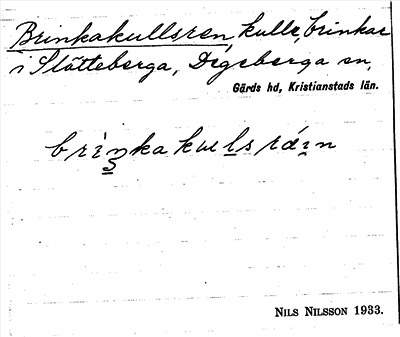 Brinkakullsren, kulle, brinkar
i Slätteberga, Degeberga sn,
Gärds hd, Kristianstads län.
brìnka kulsráin
NILS NILSSON 1933.